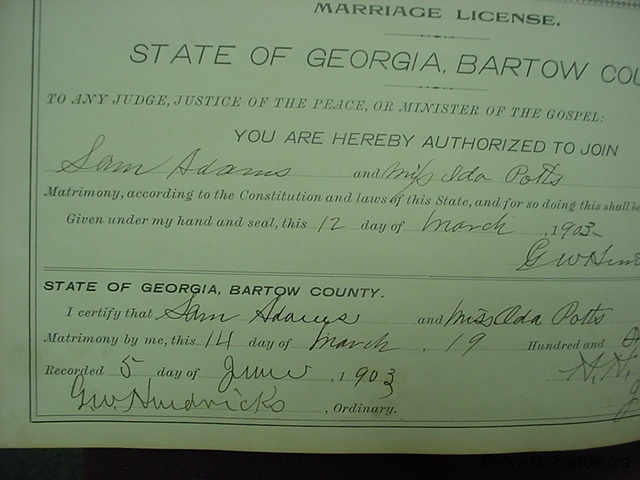 MARRIAGE LICENSE.
STATE OF GEORGIA, BARTOW COU
TO ANY JUDGE, JUSTICE OF THE PEACE, OR MINISTER OF THE GOSPEL:
YOU ARE HEREBY AUTHORIZED TO JOIN
Sam Adams and Miss Ida Potts
Matrimony, according to the Constitution and laws of this State, and for so doing this shall be
Given under my hand and seal, this 12 day of March, 1903
G W Hen
STATE OF GEORGIA, BARTOW COUNTY.
I certify that Sam Adams and Miss Ida Potts
Matrimony by me, this 14 day of March, 19 Hundred and
Recorded 5 day of June, 1903
G.W. Hendricks, Ordinary.
www.GaBartow.org